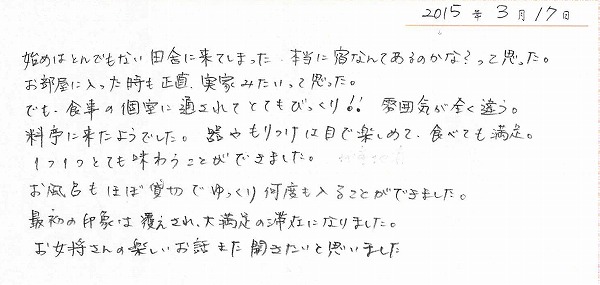 2015年3月17日
始めはとんでもない田舎に来てしまった、本当に宿なんてあるのかな?って思った。
お部屋に入った時も正直、実家みたいって思った。
でも、食事の個室に通されてとてもびっくり!! 雰囲気が全く違う。
料亭に来たようでした。器やもりつけは目で楽しめて、食べても満足。
1つ1つとても味わうことができました。
お風呂もほぼ貸切でゆっくり何度も入ることができました。
最初の印象は覆えされ、大満足の滞在になりました。
お女将さんの楽しいお話また聞きたいと思いました